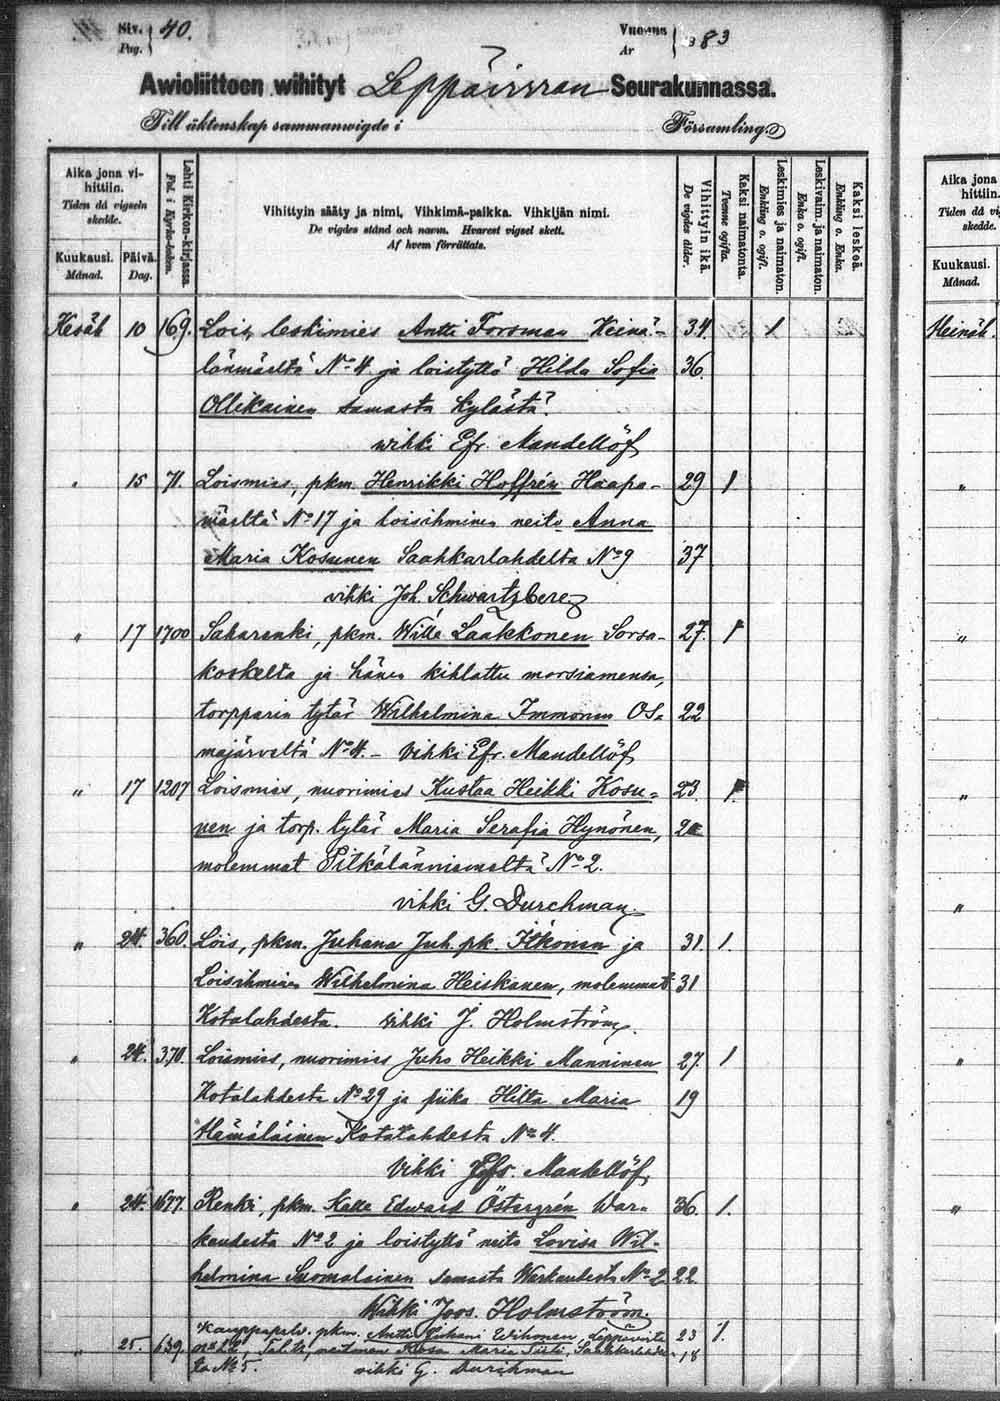 Siv. Pag. } 40.
Vuonna Ar } 883
Awioliittoon wihityt Leppävirran Seurakunnassa.
Till äktenskap sammanwigde i Församling.
Aika jona vihittiin.
Tiden då vigseln skedde.
Kuukausi.
Månad.
Päivä.
Dag.
Lehti Kirkon-kirjassa.
Fol. i Kyrko-boken.
Vihittyin sääty ja nimi, Vihkimä-paikka. Vihkijän nimi.
De vigdes stånd och namn. Hvarest vigsel skett.
Af hvem förrättats.
Vihittyin ikä.
De vigdes ålder.
Kaksi naimatonta.
Tvenne ogifta.
Leskimies ja naimaton.
Enkling o. ogift.
Leskivaim. ja naimaton.
Enka o. ogift.
Kaksi leskeä.
Enkling o. Enka.
Kesäk 10 169. Lois, leskimies Antti Forsman Keinä- 34. 1
länmäeltä No 4 ja loistyttö Hilda Sofia 36.
Ollikainen samasta kylästä.
wihki Efr. Mandellöf
" 15 71. Loismies, pkm. Henrikki Hoffrén Haapa- 29 1
mäeltä No 17 ja loisihminen neito Anna
Maria Kosunen Saahkarlahdelta No 9 37
vihki Joh. Schwartzberg
" 17 1700 Saharenki, pkm. Wille Laakkonen Sorsa- 27. 1
koskelta ja hänen kihlattu morsiamensa,
torpparin tytär Wilhelmina Immonen Os- 22
majärveltä No 4. - Vihki Efr. Mandellöf
" 17 1207 Loismies, nuorimies Kustaa Heikki Kosu- 23. 1.
nen ja torp. tytär Maria Serafia Hynönen,
molemmat Pitkälänniemeltä No 2.
vihki G. Durchman.
" 24. 360. Lois, pkm. Juhana Juh. pk. Itkonen ja 31. 1.
Loisihminen Wilhelmina Heiskanen, molemmat 31
Kotalahdesta. vihki J. Holmström.
" 24. 370. Loismies, nuorimies Juho Heikki Manninen 27. 1
Kotalahdesta No 29 ja piika Hilta Maria 19
Hämäläinen Kotalahdesta No 4.
Vihki Efr. Mandellöf
" 24. 1677. Renki, pkm. Kalle Edward Östergrén War- 36. 1.
kaudesta No 2 ja loistyttö neito Lovisa Wil-
helmina Suomalainen samasta Warkaudesta No 2 22
Wihki Joos. Holmström.
Kauppapalv. pkm. Antti Juhani Wihonen, Leppävirta 23 1.
" 25. 639 Maria 18
No 5. vihki G. Durchman
Aika jona
hittiin
Tiden då vi
skedde.
Kuukausi.
Månad.
Heinäk.
"
"
"
"
"
"